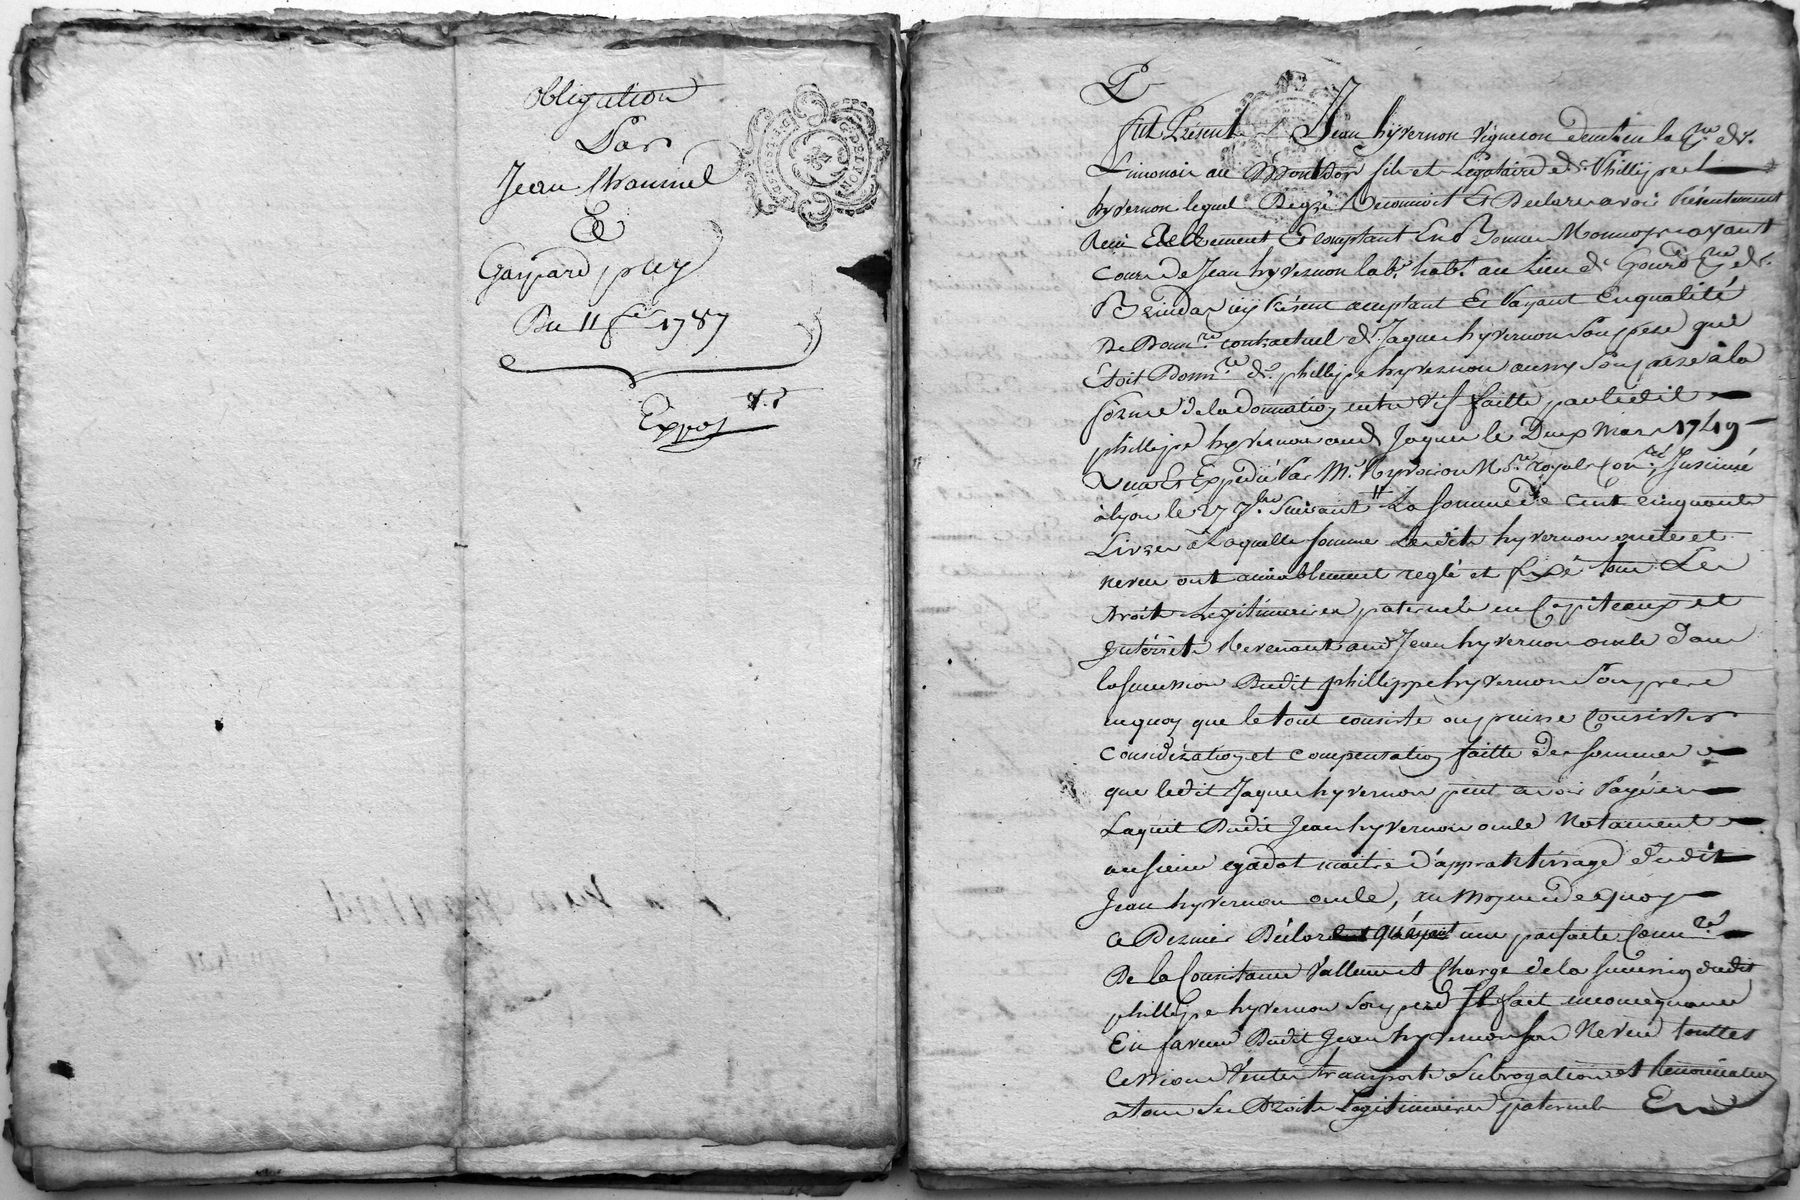 Obligation
Par
Jean
&
Gaspard puy
Du 11 1787
Expes
G. DE LYON
Fut Présent Jean hyvernon vigneron demt en la
Limonois au Montdor fils et Légataire de Phillipe
hyvernon lequel De gré Reconnoit Et Declare avoir Présentement
Reçu Reellement Et comptant En Bonne Monnoye ayant
Cours de Jean hyvernon labr habt au Lieu de
Brindas icy Présent acceptant Et Payant En qualité
De Donnre contractuel de Jaque hyvernon Son pere qui
Etoit Donnre de phillipe hyvernon aussy Son pere à la
forme de la donnation entre vif faitte par ledit
phillipe hyvernon aud Jaque le Deux Mars 1749
Reçue Et Expediée Par Me Nre royal Insinué
à lyon le 27 7bre Suivant La Somme de cent cinquante
Livres a Laquelle Somme Lesdits hyvernon oncle et
neveu ont amiablement reglé et fixé tous Les
Droits Legitimaires paternels en Capiteaux et
Intérêts Revenant aud Jean hyvernon oncle dans
la Succession Dudit phillippe hyvernon Son pere
en quoy que le tout consiste ou puisse Consister
Considération et compensation faitte des Sommes
que ledit Jaque hyvernon peut avoir Payées
a L'aquit Dudit Jean hyvernon oncle Notament
au Sieur maitre d'apprentissage dudit
Jean hyvernon oncle, au Moyen de quoy
Ce Dernier Déclare une parfaite Connce
De la Consistance Valleur et Charge de la Succession dudit
phillipe hyvernon Son pere Il fait en consequance
En faveur Dudit Jean hyvernon Son Neveu touttes
Cessions Ventes transports Subrogations et Renonciation
a tous Ses Droits Legitimaires paternels En